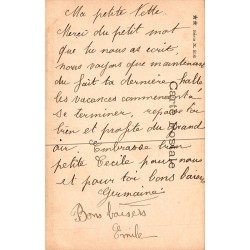 Ma petite
Merci du petit mot
que tu nous as écrit,
nous voyons que maintenant
du fait ta dernière
les vacances commencent à
se terminer, repose toi
bien et profite du grand
air. Embrasse bien
petite Cecile pour nous
et pour toi bons baisers
Germaine
Bons baisers
Emile
Carte Postale